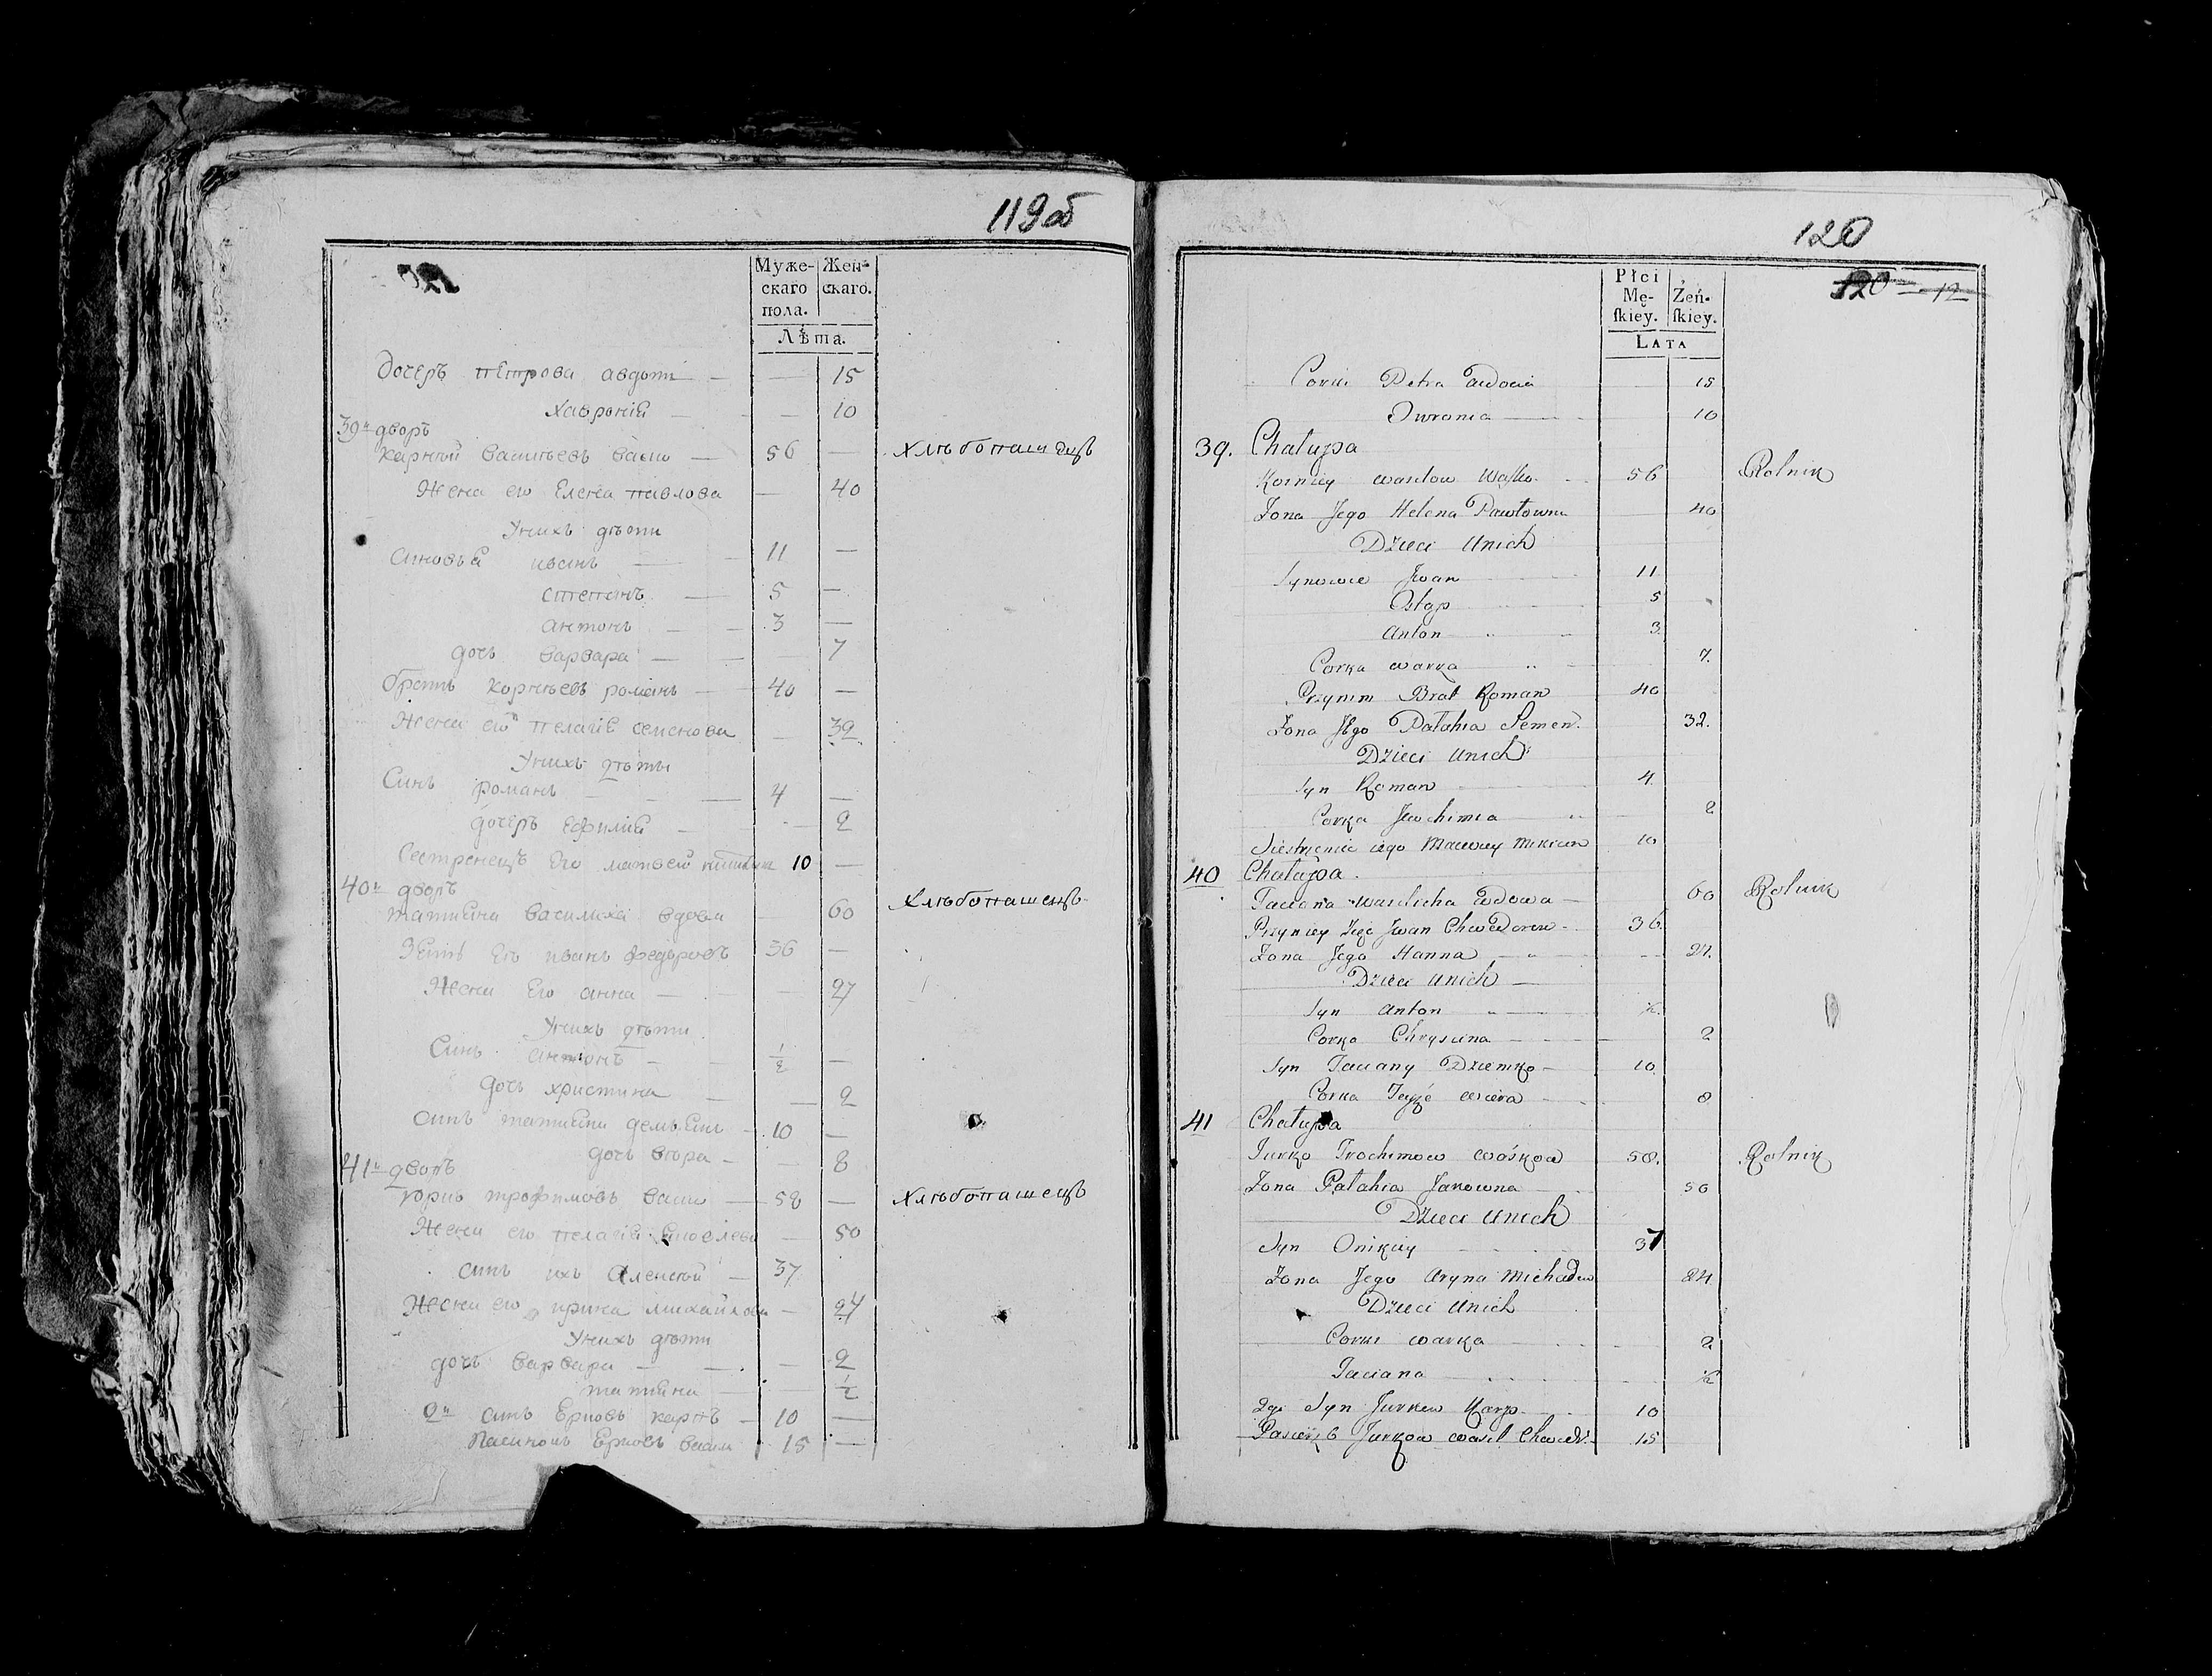 119об
Муже- Жен-
скаго скаго.
пола.
Лѣта.
дочерь петрова авдоти — — 15
хаврония — — 10
39й дворъ
карнѣй васильевъ васко — 56 — хлѣбопашецъ
жена его елена павлова — 40
У нихъ дѣти
синовья иванъ — 11 —
степанъ — 5 —
антонъ — 3 —
дочь варвара — — 7
братъ корнѣевъ романъ — 40 —
жена его пелагия семенова — 32
У нихъ дѣти
синъ романъ — 4 —
дочерь — — 2
сестренецъ его матвей 10 —
40й дворъ
татияна василиха вдова — 60 хлѣбопашецъ
зять его иванъ федоровъ 36 —
жена его анна — — 27
У нихъ дѣти
синъ антонъ — 1/2 —
дочь христина — — 2
синъ татияни демьянъ — 10 —
дочь вѣра — — 8
41й дворъ
юрко трофимовъ — 58 — хлѣбопашецъ
жена его пелагия — 50
синъ ихъ — 37
жена его ирина михайлова — 24
У нихъ дѣти
дочь варвара — — 2
татияна — — 1/2
2й синъ карпъ — 10 —
15 —
120
120 12
Płci
Mę- Żeń-
skiey. skiey.
LATA
Corki Petra Awdocia 15
Owronia 10
39. Chałupa
Korniey Wasilow Wasko 56 Rolnik
Zona Jego Helena Pawłowna 40
Dzieci Unich
Synowie Jwan 11
Ostap 5
Anton 3
Corka Warka 7.
Przynim Brat Roman 40
Zona Jego Palahia Semen. 32.
Dzieci Unich
Syn Roman 4
Corka Jewchimia 2
Siestrzeniec iego Mateusz 10
40 Chałupa.
Taciana Wasilicha Wdowa — 60 Rolnik
Przyniey Zięć Jwan Chwedorow 36.
Zona Jego Hanna 27.
Dzieci Unich —
Syn Anton 1/2
Corka Chrystina 2
Syn Taciany Dziemko — 10.
Corka Teyże Wiera 8
41 Chałupa
Jurko Trochimow Wośkow 58. Rolnik
Zona Palahia Jakowna 50
Dzieci Unich
Syn Onikiey 37
Zona Jego Aryna Michałow 24
Dzieci Unich
Corki Warka 2
Taciana 1/2
2gi Syn Jurkow Karp 10
Pasierzb Jurkow Wasil Chwed. 15